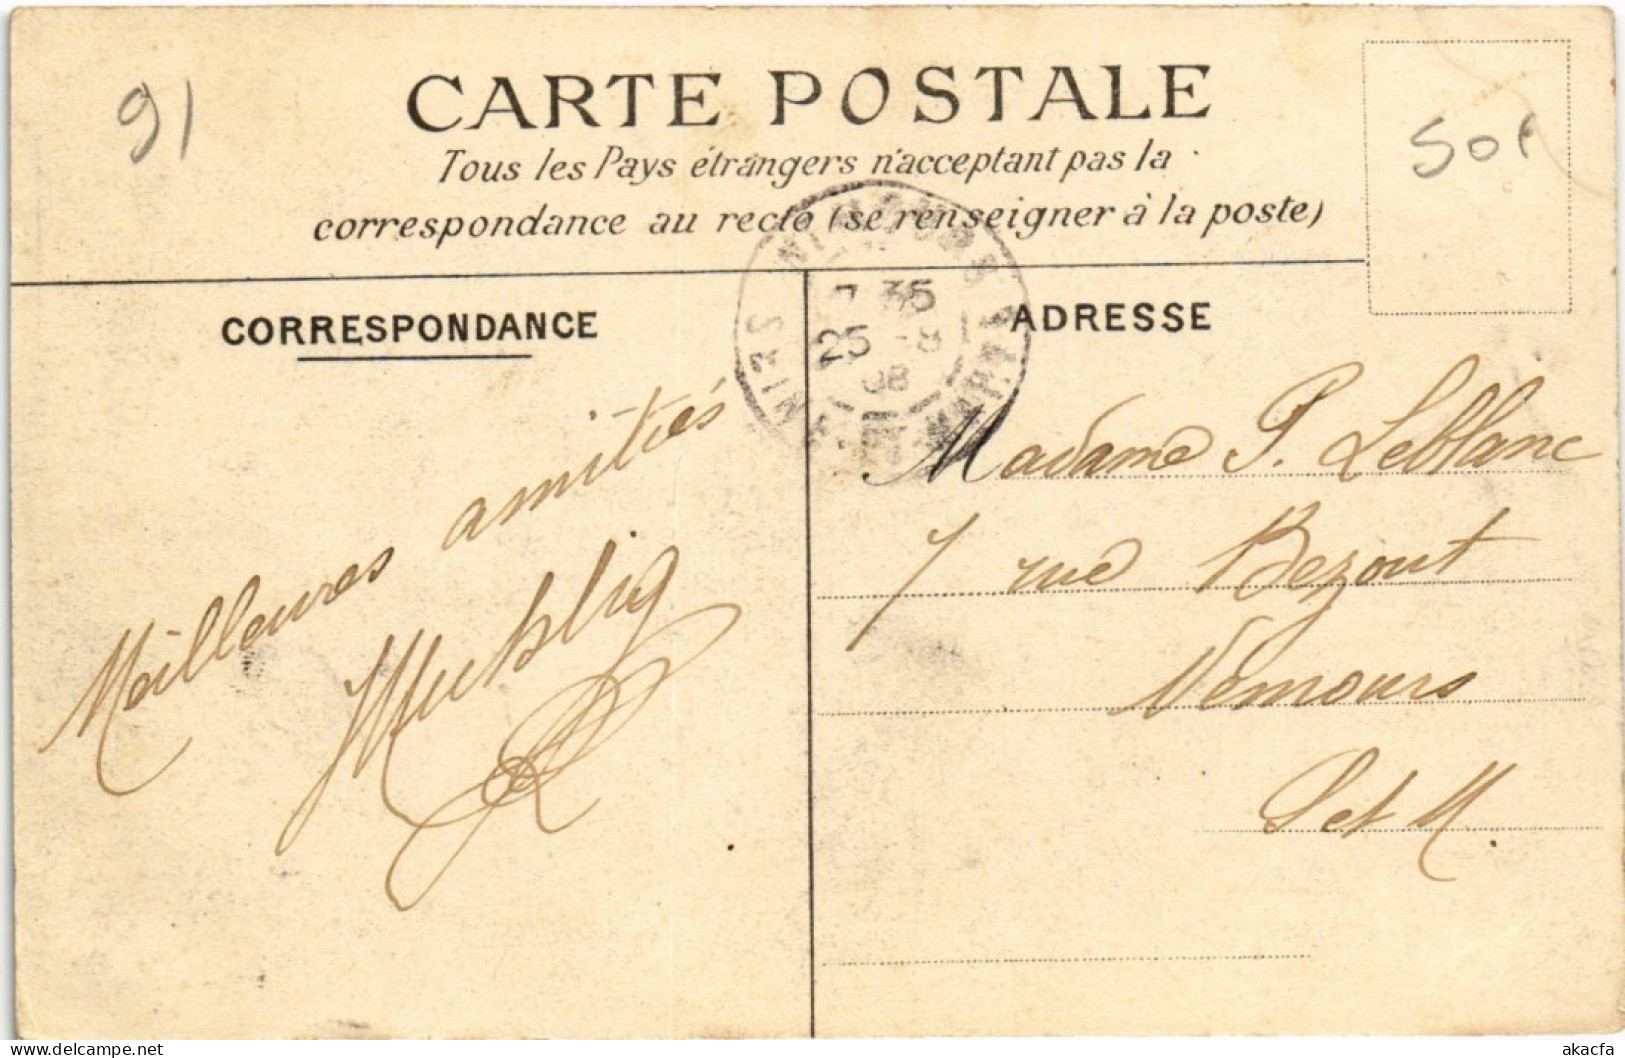 91
CARTE POSTALE
Tous les Pays étrangers n'acceptant pas la
correspondance au recto (se renseigner à la poste)
50f
CORRESPONDANCE
ADRESSE
7 35
25 -8
08
Meilleures amitiés
Madame P. Leblanc
7 rue Bezout
Nemours
S et M.
akacfa